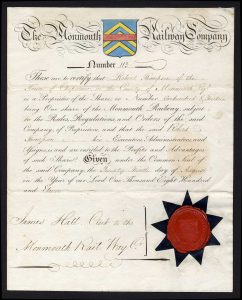 The Monmouth Railway Company
Number 112
These are to certify that Robert Thompson of the
Town of Chepstow in the County of Monmouth
is a Proprietor of the Share, or Number
being One Share of the Monmouth Railway, subject
to the Rules, Regulations, and Orders of the said
Company, of Proprietors, and that the said Robert
Thompson his Executors, Administrators, and
Assigns, are entitled to the Profits and Advantages
of such Share. Given under the Common Seal
of the said Company, the Twenty day of August
in the Year of our Lord One Thousand Eight Hundred
and
James Hall Clerk to the
Monmouth Rail Way Co